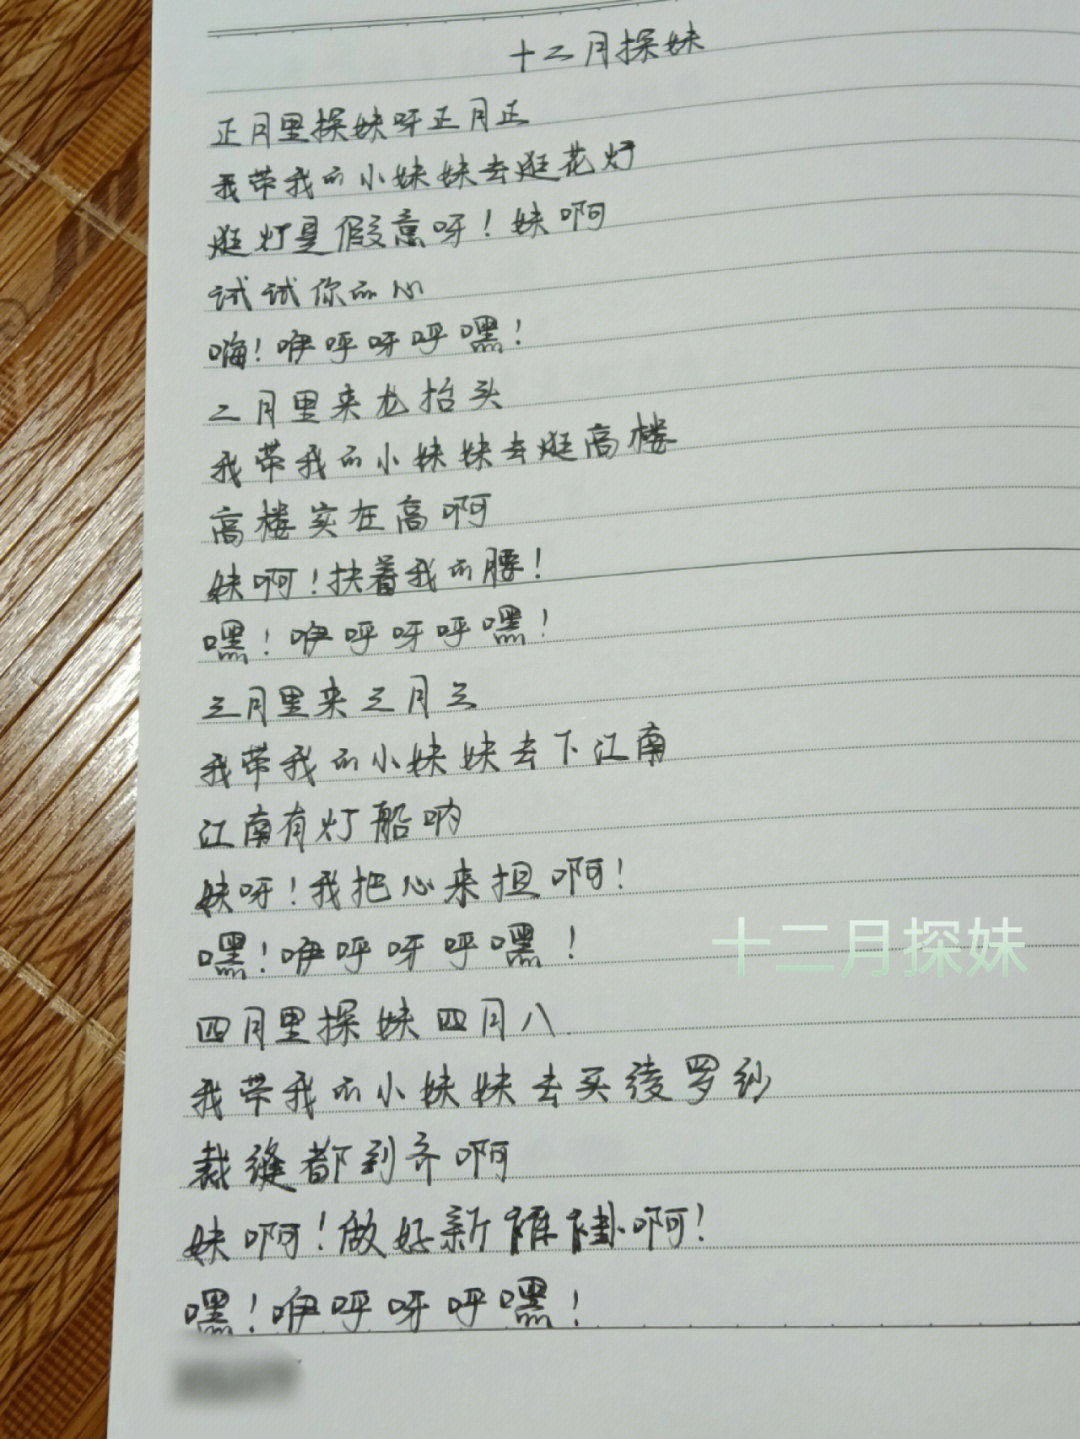 十二月探妹
正月里探妹呀正月正
我带我的小妹妹去逛花灯
逛灯是假意呀!妹啊
试试你的心
嗨!咿呼呀呼嘿!
二月里来龙抬头
我带我的小妹妹去逛高楼
高楼实在高啊
妹啊!扶着我的腰!
嘿!咿呼呀呼嘿!
三月里来三月三
我带我的小妹妹去下江南
江南有灯船呐
妹呀!我把心来担啊!
嘿!咿呼呀呼嘿!
十二月探妹
四月里探妹四月八
我带我的小妹妹去买绫罗纱
裁缝都到齐啊
妹啊!做好新裤褂啊!
嘿!咿呼呀呼嘿!